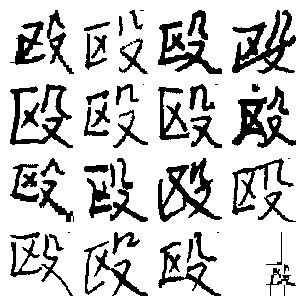 殴殴殴殴
殴殴殴殴
殴殴殴殴
殴殴殴殴